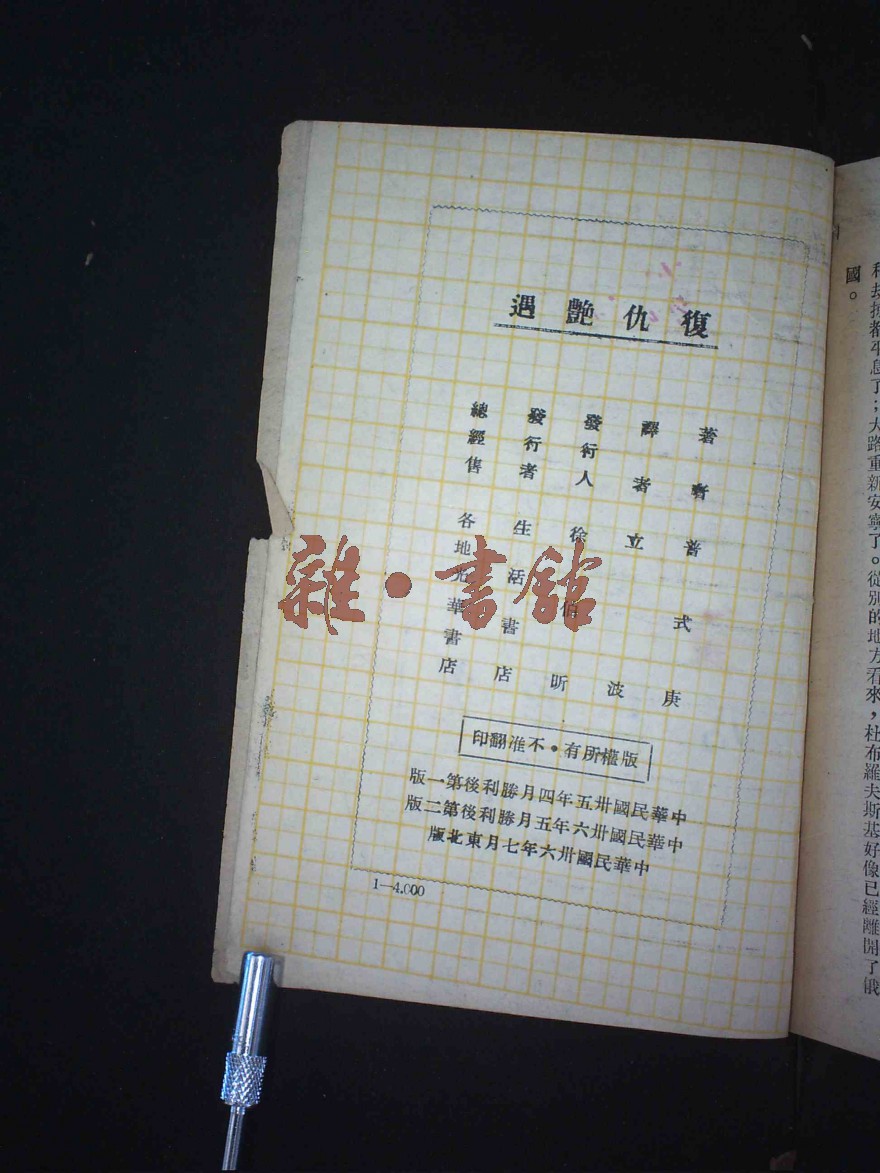 和劫掠都平息了；大路重新安寧了。從別的地方看來，杜布羅夫斯基好像已經離開了俄
國。
復仇艷遇
著者 普式庚
譯者 立波
發行人 徐伯昕
發行者 生活書店
總經售 各地光華書店
版權所有・不准翻印
中華民國卅五年四月勝利後第一版
中華民國卅六年五月勝利後第二版
中華民國卅六年七月東北版
1—4.000
雜・書館